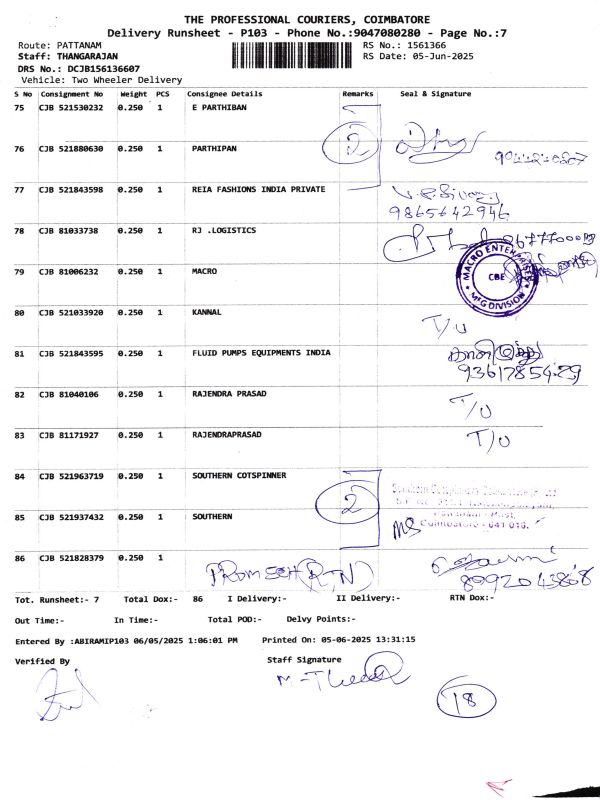 THE PROFESSIONAL COURIERS, COIMBATORE
Delivery Runsheet - P103 - Phone No.:9047080280 - Page No.:7
Route: PATTANAM RS No.: 1561366
Staff: THANGARAJAN RS Date: 05-Jun-2025
DRS No.: DCJB156136607
Vehicle: Two Wheeler Delivery
S No Consignment No Weight PCS Consignee Details Remarks Seal & Signature
75 CJB 521530232 0.250 1 E PARTHIBAN
2
76 CJB 521880630 0.250 1 PARTHIPAN
77 CJB 521843598 0.250 1 REIA FASHIONS INDIA PRIVATE
9865642946
78 CJB 81033738 0.250 1 RJ .LOGISTICS
79 CJB 81006232 0.250 1 MACRO
MACRO ENTERPRISES
CBE
MFG DIVISION
80 CJB 521033920 0.250 1 KANNAL T/U
81 CJB 521843595 0.250 1 FLUID PUMPS EQUIPMENTS INDIA
9361785429
82 CJB 81040106 0.250 1 RAJENDRA PRASAD T/U
83 CJB 81171927 0.250 1 RAJENDRAPRASAD T/U
84 CJB 521963719 0.250 1 SOUTHERN COTSPINNER
2
85 CJB 521937432 0.250 1 SOUTHERN
Coimbatore - 641 016.
86 CJB 521828379 0.250 1 PROMECH (RTN)
8992043868
Tot. Runsheet:- 7 Total Dox:- 86 I Delivery:- II Delivery:- RTN Dox:-
Out Time:- In Time:- Total POD:- Delvy Points:-
Entered By :ABIRAMIP103 06/05/2025 1:06:01 PM Printed On: 05-06-2025 13:31:15
Verified By Staff Signature
18